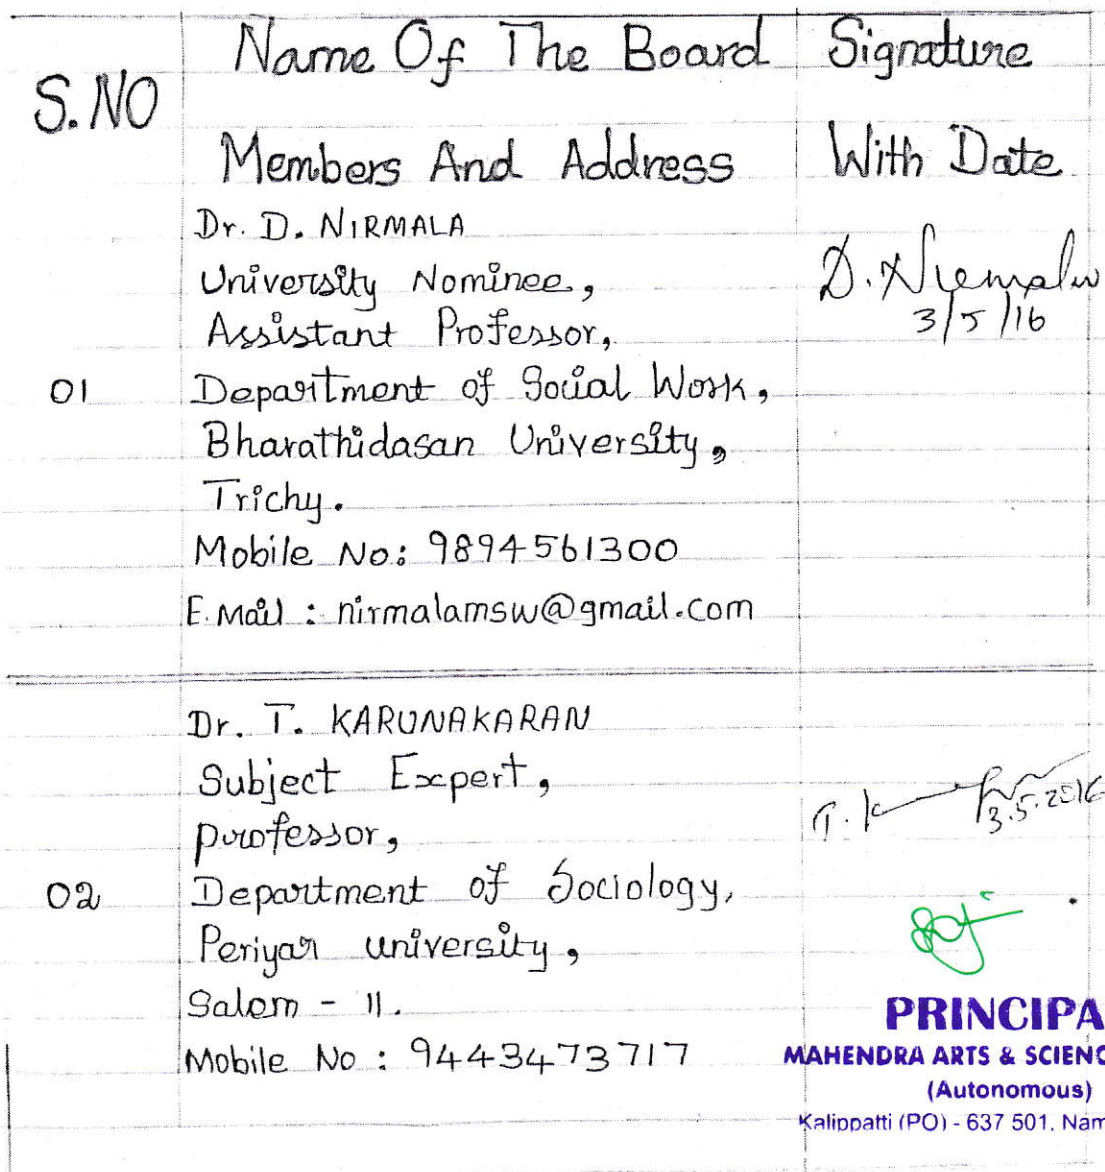 S.NO
Name Of The Board
Members And Address
Signature
With Date
01
Dr. D. NIRMALA
University Nominee,
Assistant Professor,
Department of Social Work,
Bharathidasan University,
Trichy.
Mobile No: 9894561300
E.Mail : nirmalamsw@gmail.com
D. Nirmala
3/5/16
02
Dr. T. KARUNAKARAN
Subject Expert,
professor,
Department of Sociology,
Periyar university,
Salem - 11.
Mobile No : 9443473717
T. K
3.5.2016
PRINCIPA
MAHENDRA ARTS & SCIENC
(Autonomous)
Kalippatti (PO) - 637 501, Nam